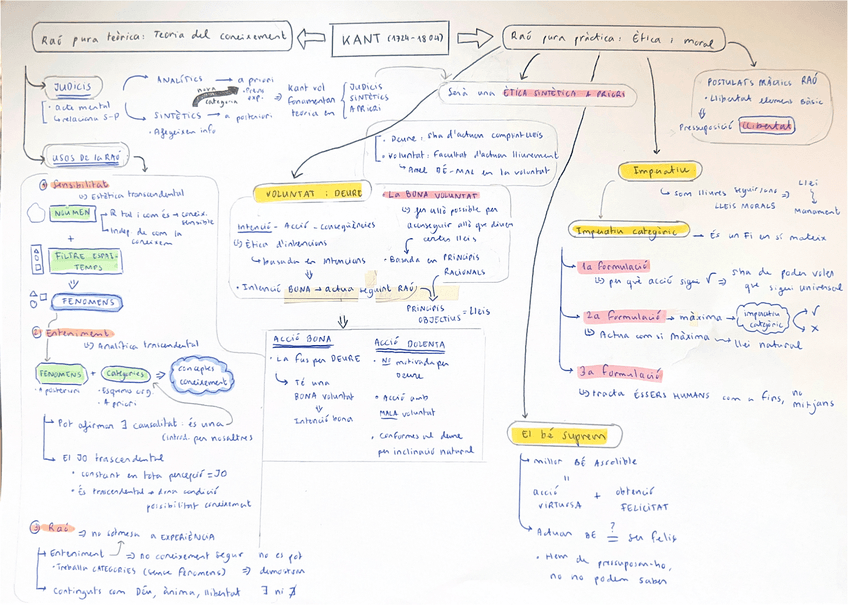 Raó pura teòrica: Teoria del coneixement
KANT (1724-1804)
Raó pura pràctica: Ètica i moral
JUDICIS
· acte mental
· relaciona S-P
ANALÍTICS → a priori
· Previ exp.
nova
categoria
SINTÈTICS → a posteriori
· Afegeixen info
Kant vol
fonamentar
teoria en
JUDICIS
SINTÈTICS
A PRIORI
Serà una ÈTICA SINTÈTICA A PRIORI
POSTULATS PRÀCTICS RAÓ
· Llibertat element bàsic
Pressuposició LLIBERTAT
USOS DE LA RAÓ
① Sensibilitat
Estètica transcendental
NOUMEN
R tal i com és → coneix.
sensible
Indep de com la
coneixem
+
FILTRE ESPAI-
TEMPS
FENOMENS
2) Enteniment
Analítica transcendental
FENOMENS + Categories ⇒ conceptes
coneixement
· A posteriori
· Esquema org.
· A priori
Pot afirmar ∃ causalitat · és una
(introd. per nosaltres)
El JO trascendental
· constant en tota percepció = JO
· És trascendental → dona condició
possibilitat coneixement
③ Raó ⇒ no sotmesa a EXPERIÈNCIA
Enteniment ⇒ no coneixement segur no es pot
· Treballar CATEGORIES (sense fenomens) ⇒ demostrar
Continguts com Déu, ànima, llibertat ∃ ni ∄
· Deure: S'ha d'actuar complint lleis
· Voluntat: Facultat d'actuar lliurement
Arrel BÉ-MAL en la voluntat
VOLUNTAT i DEURE
Intenció - Acció - conseqüències
Ètica d'intencions
basada en intencions
· Intenció BONA → actua seguint RAÓ
LA BONA VOLUNTAT
fer allò possible per
aconseguir allò que diuen
certes lleis
· Basada en PRINCIPIS
RACIONALS
PRINCIPIS
OBJECTIUS = Lleis
ACCIÓ BONA
· La fas per DEURE
Té una
BONA voluntat
Intenció bona
ACCIÓ DOLENTA
· NO motivada per
deure
· Acció amb
MALA voluntat
· conformes al deure
per inclinació natural
Imperatiu
som lliures seguir/no ⇒ Llei
LLEIS MORALS
Manament
Imperatiu categòric
És un Fi en si mateix
1a formulació
per què acció sigui √ ⇒ s'ha de poder voler
que sigui universal
2a formulació → màxima → imperatiu
categòric √
x
Actua com si màxima → llei natural
3a formulació
tracta ÉSSERS HUMANS com a fins, no
mitjans
El bé suprem
millor BÉ Assolible
=
acció
VIRTUOSA + obtenció
FELICITAT
Actuar BÉ =? ser feliç
· Hem de pressuposar-ho,
no ho podem saber